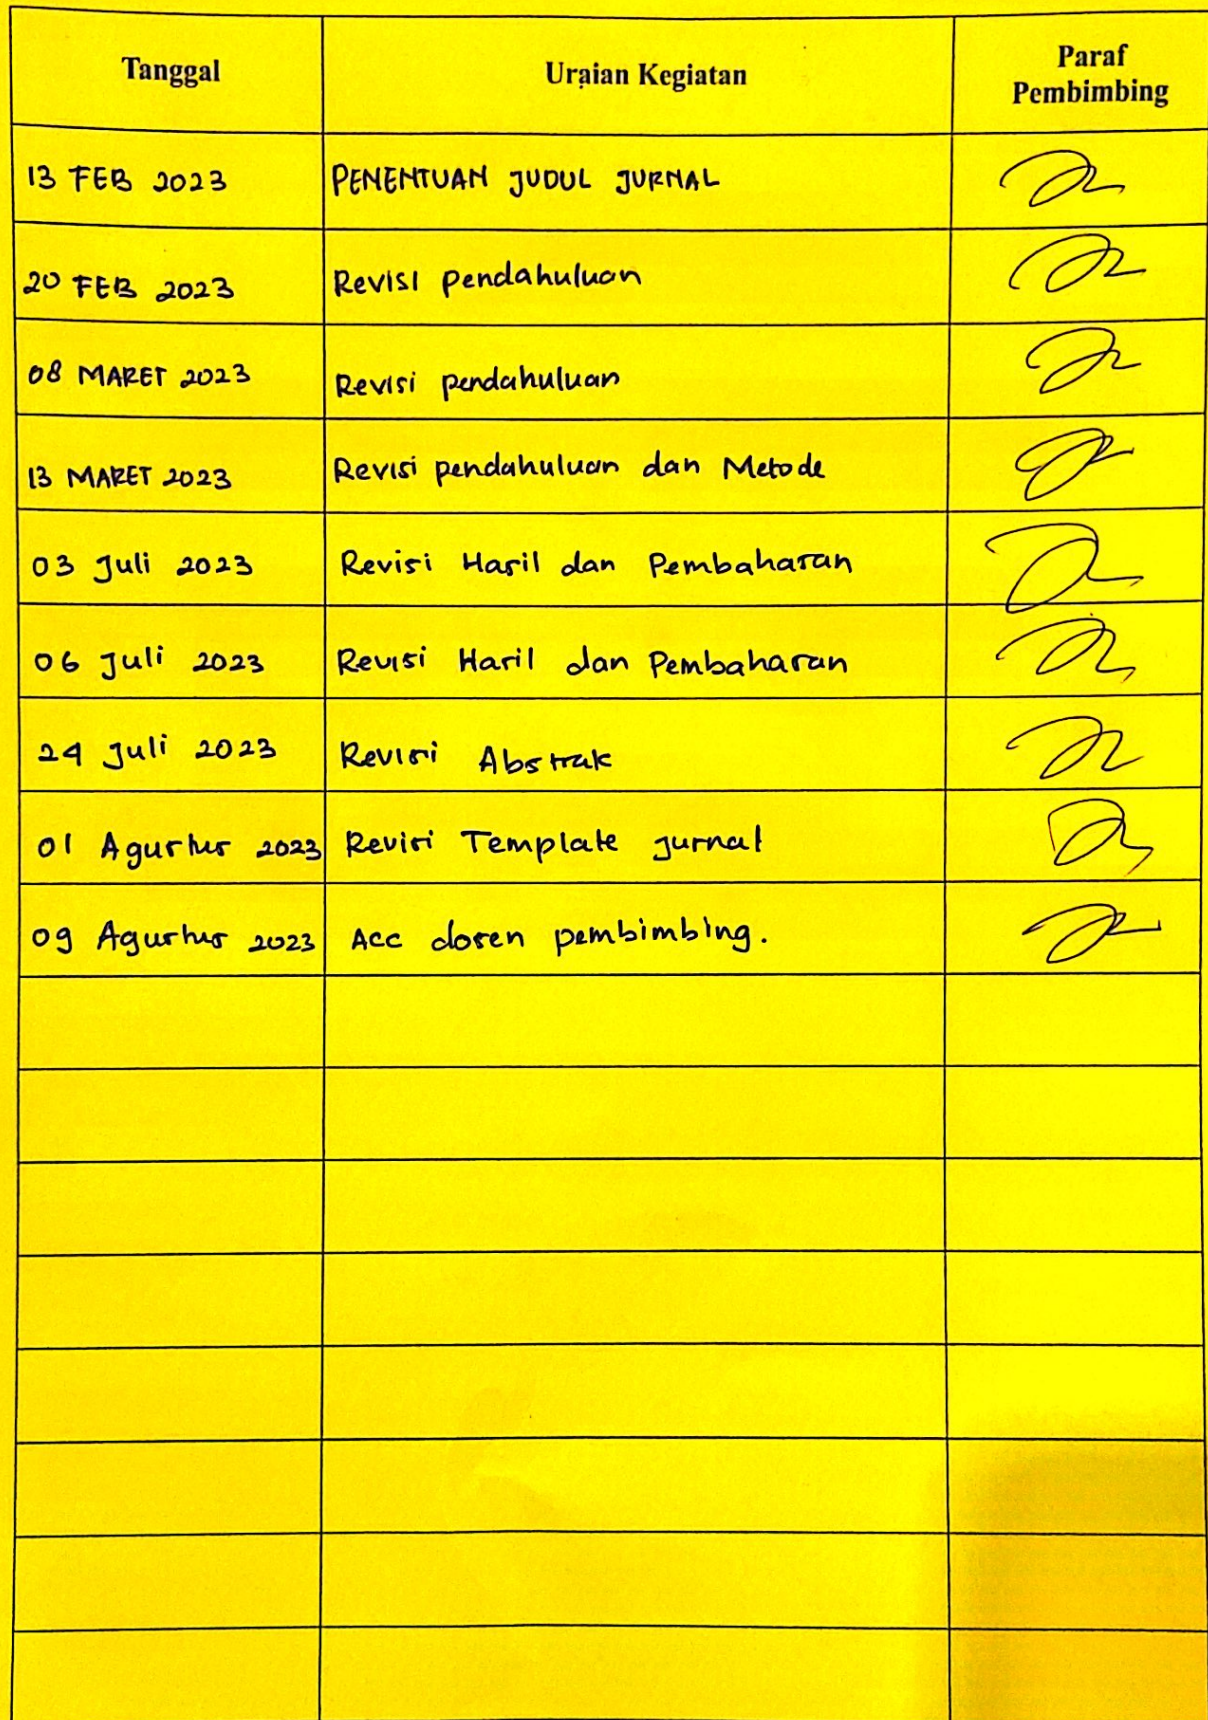 Tanggal Uraian Kegiatan Paraf
Pembimbing
13 FEB 2023 PENENTUAN JUDUL JURNAL
20 FEB 2023 Revisi pendahuluan
08 MARET 2023 Revisi pendahuluan
13 MARET 2023 Revisi pendahuluan dan Metode
03 Juli 2023 Revisi Hasil dan Pembahasan
06 Juli 2023 Revisi Hasil dan Pembahasan
24 Juli 2023 Revisi Abstrak
01 Agustus 2023 Revisi Template jurnal
09 Agustus 2023 Acc dosen pembimbing.